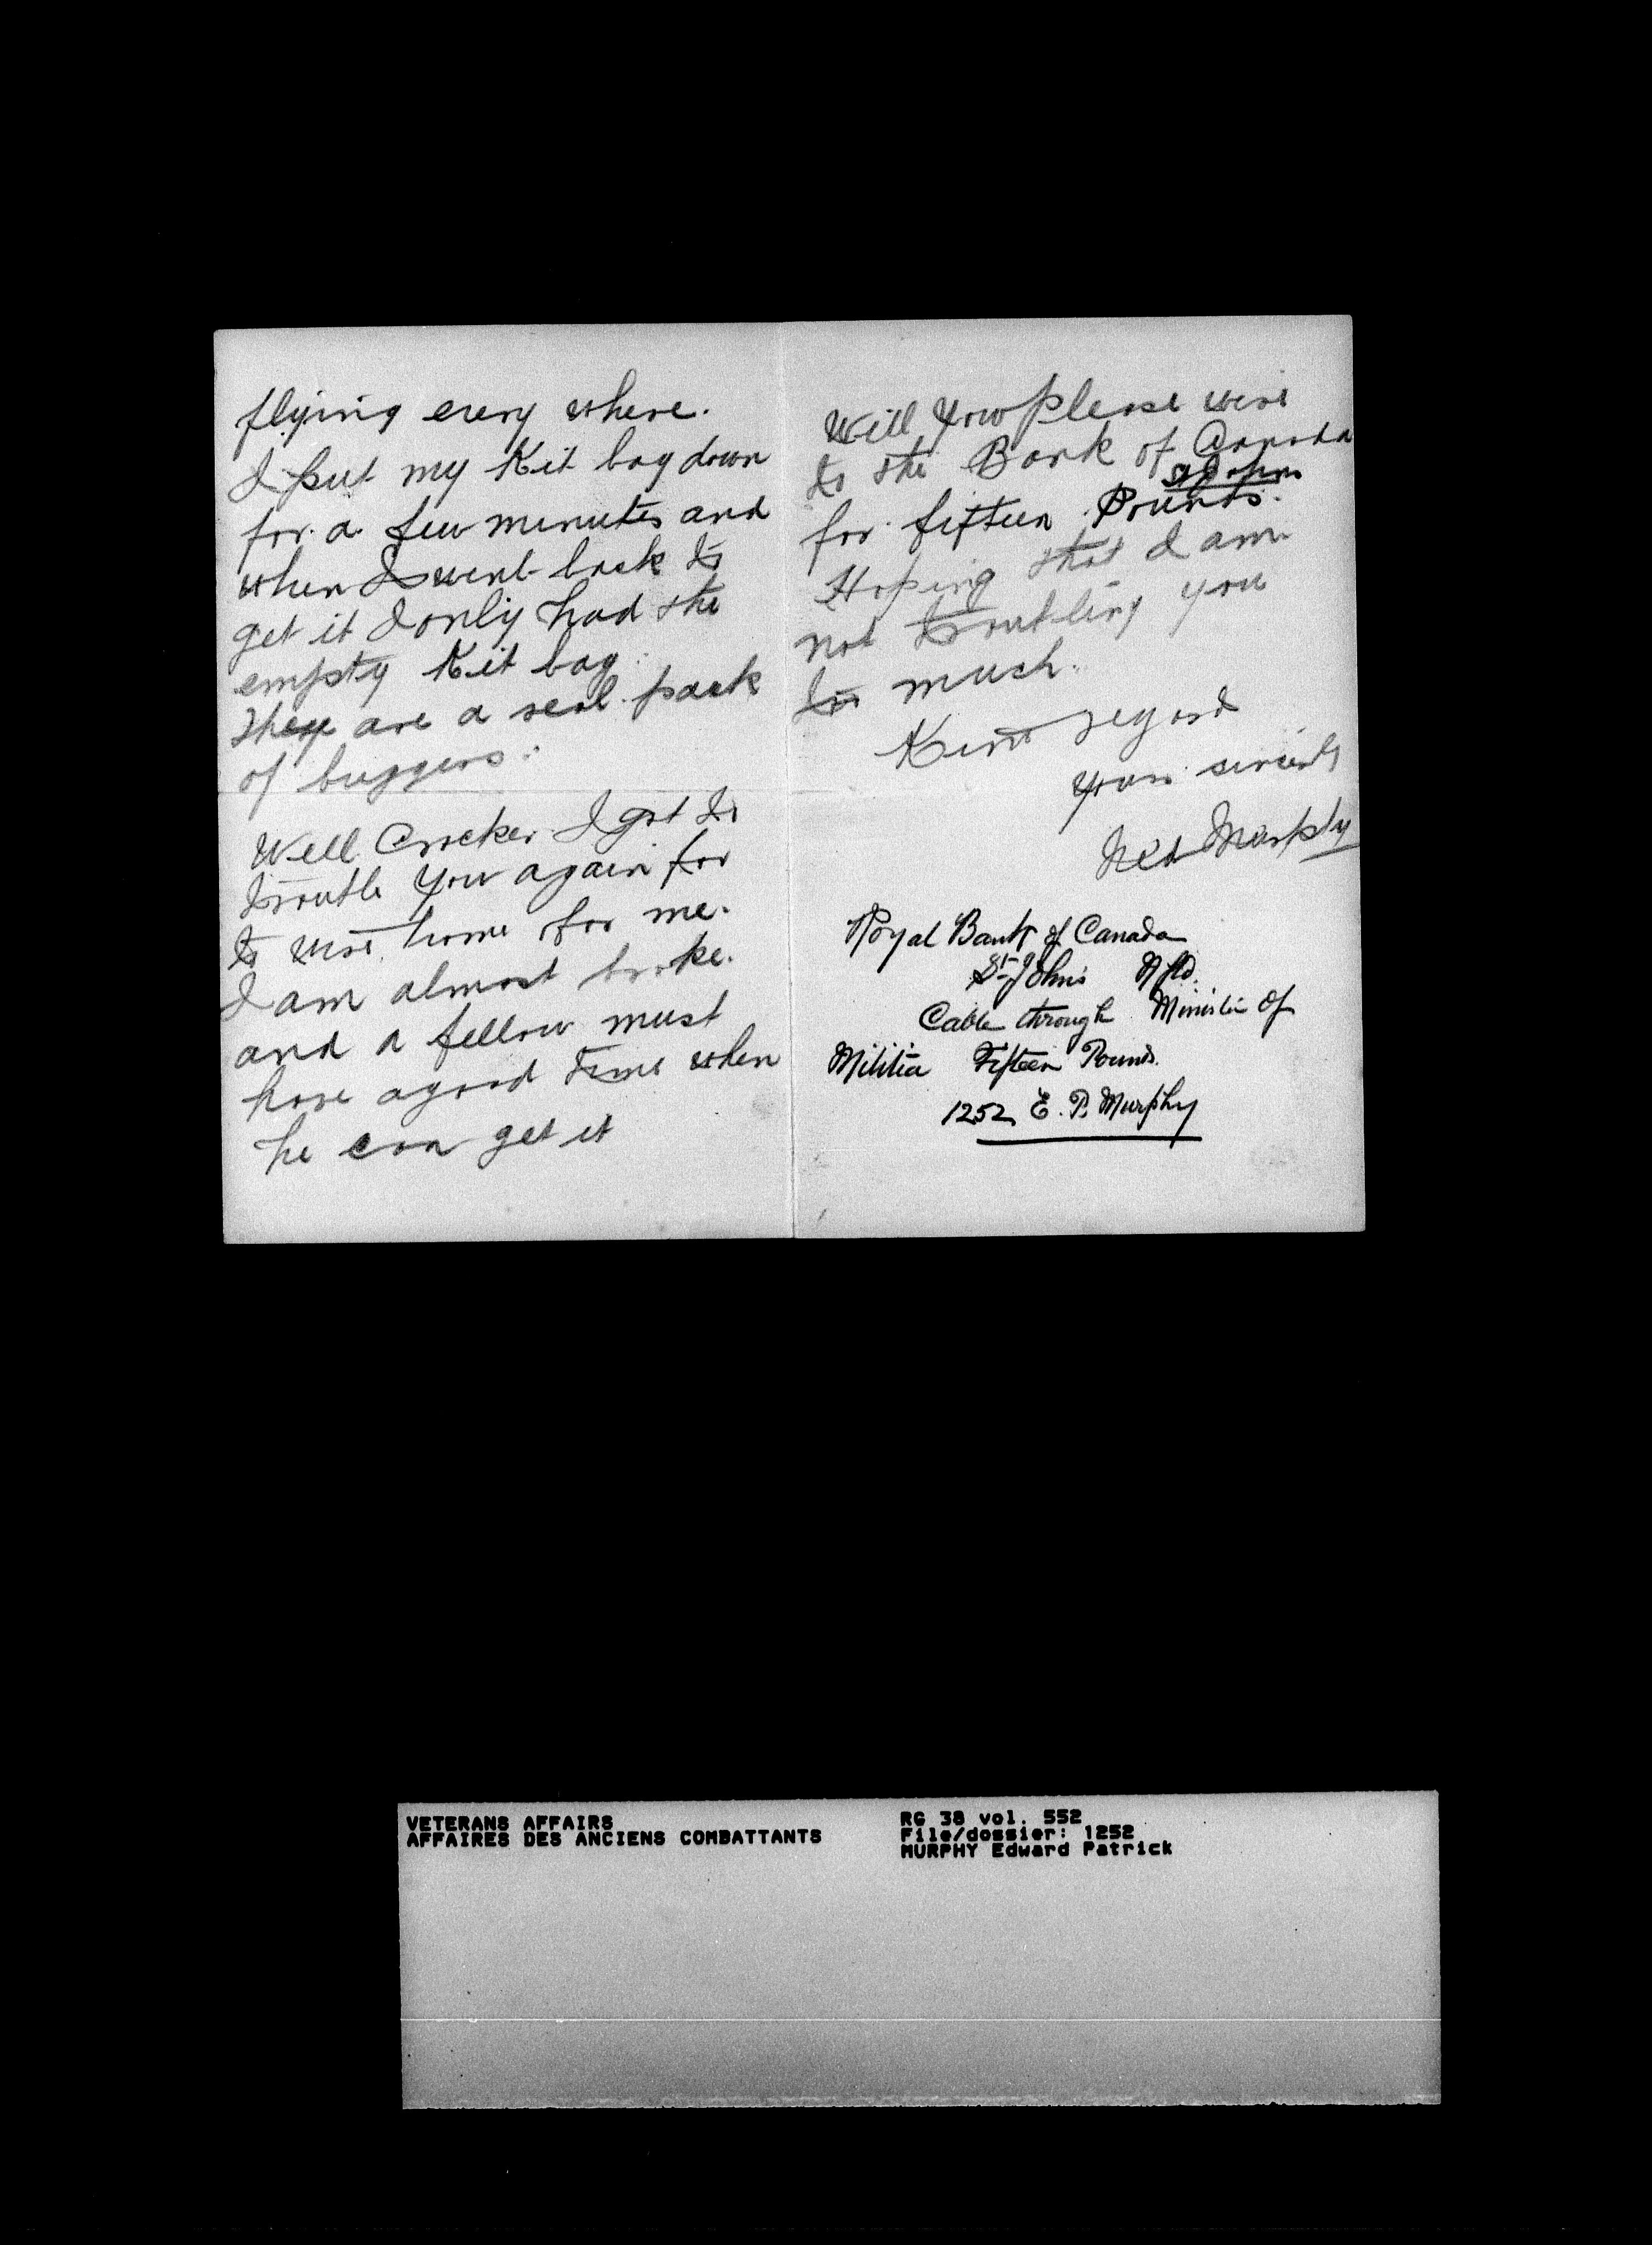 flying every where.
I put my Kit bag down
for a few minutes and
when I went back to
get it I only had the
empty Kit bag.
They are a real pack
of buggers.
Well Crocker I got to
trouble you again for
to wire home for me.
I am almost broke.
and a fellow must
have a good time when
he can get it
Will you please wire
to the Bank of Canada
St Johns
for fifteen Pounds.
Hoping that I am
not troubling you
to much.
Kind regard
yours sincerly
Ned Murphy
Royal Bank of Canada
St Johns Nfld.
Cable through Minister of
Militia Fifteen Pounds.
1252 E. P. Murphy
VETERANS AFFAIRS
AFFAIRES DES ANCIENS COMBATTANTS
RG 38 vol. 552
File/dossier: 1252
MURPHY Edward Patrick